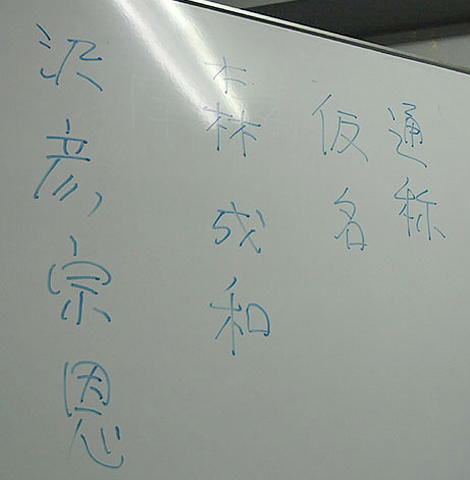 通称
仮名
森成和
沢彦宗恩